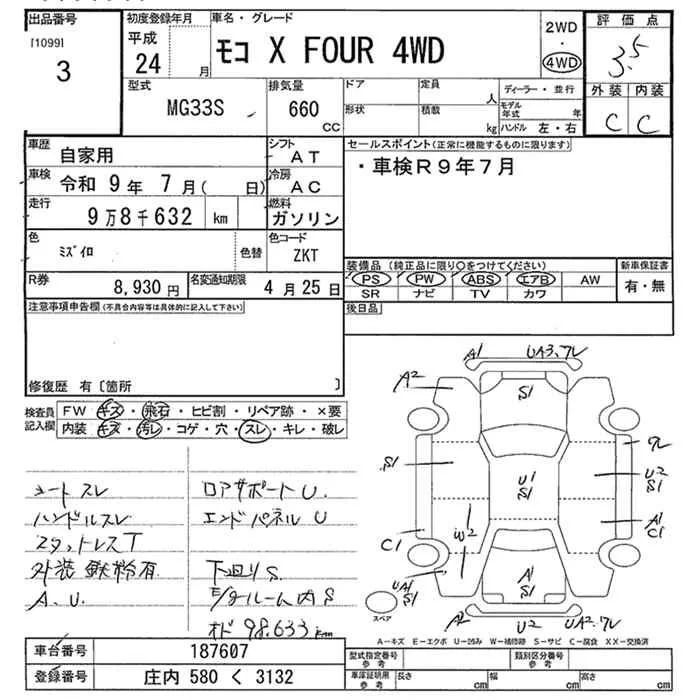 出品番号
[1099]
3
初度登録年月
平成
24 月
車名・グレード
モコ X FOUR 4WD
2WD
・
4WD
評価点
3.5
外装 内装
C C
型式
MG33S
排気量
660
CC
ドア
形状
定員
人
積載
kg
ディーラー・並行
モデル
年式 年
ハンドル 左・右
車歴
自家用
シフト
AT
車検 令和 9年 7月( 日)
冷房
AC
走行
9万8千632 km
燃料
ガソリン
色
ミズイロ
色替
色コード
ZKT
R券
8,930円
名変通知期限
4月25日
セールスポイント(正常に機能するものに限ります)
・車検R9年7月
装備品(純正品に限り○をつけてください)
PS PW ABS エアB AW
SR ナビ TV カワ
新車保証書
有・無
後日品
注意事項申告欄(不具合内容等は具体的に記入して下さい)
修復歴 有〔箇所 〕
検査員
記入欄
FW キズ・飛石・ヒビ割・リペア跡・×要
内装 キズ・汚レ・コゲ・穴・スレ・キレ・破レ
シートスレ
ハンドルスレ
スタットレスT
外装 鉄粉有
A.U.
ロアサポートU.
エンドパネルU
下廻りS
E/gルーム内S
オド 98,633km
A1 UA3.ワレ
A2
S1
S1
U1
S1
ワレ
U2
S1
W2
A1
C1
C1
UA1
S1
A1
S1
A2 U2 UA2.ワレ
スペア
A-キズ E-エクボ U-凹み W-補修跡 S-サビ C-腐食 XX-交換済
車台番号
187607
登録番号
庄内 580 く 3132
型式指定番号
参考
類別区分番号
参考
車庫証明用
参考
長さ cm 幅 cm 高さ cm